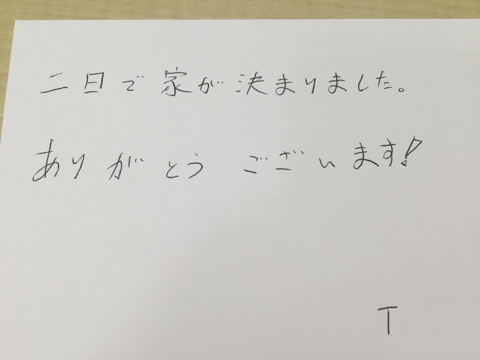 二日で家が決まりました。
ありがとうございます!
T